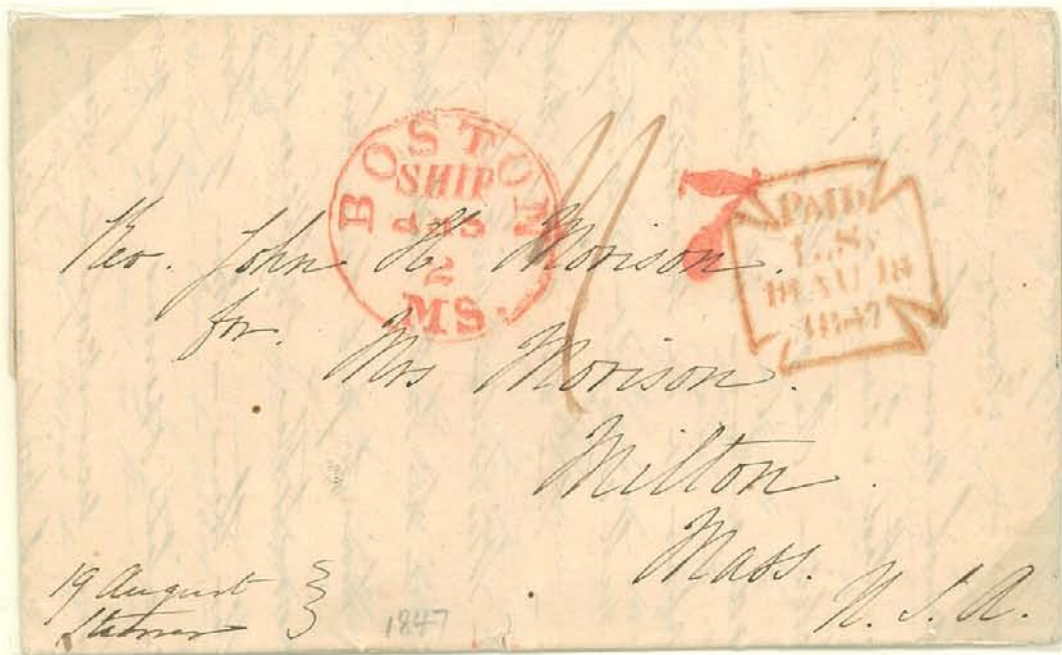 BOSTON
SHIP
2
MS.
7
PAID
L.S.
18 AU 18
1847
Rev. John H. Morison.
for
Mrs Morison.
Milton.
Mass.
U. S. A.
19 August
Steamer
1847